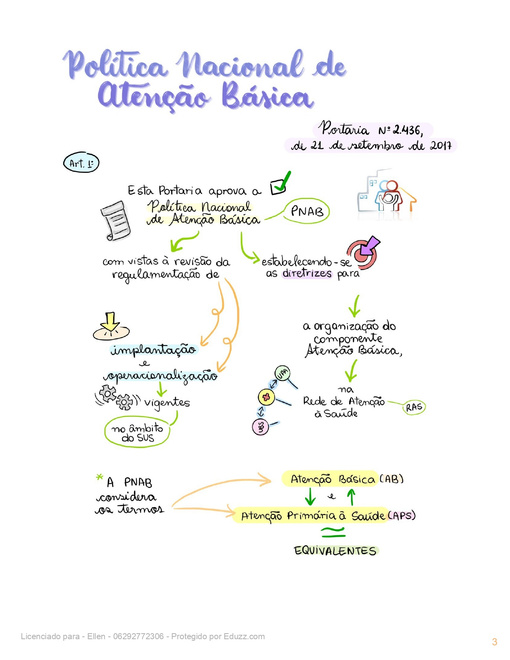 Política Nacional de
Atenção Básica
Portaria Nº 2.436,
de 21 de setembro de 2017
Art. 1º
Esta Portaria aprova a
Política Nacional
de Atenção Básica
PNAB
com vistas à revisão da
regulamentação de
estabelecendo-se
as diretrizes para
implantação
e
operacionalização
vigentes
no âmbito
do SUS
a organização do
componente
Atenção Básica,
na
Rede de Atenção
à Saúde
RAS
UPA
UBS
* A PNAB
considera
os termos
Atenção Básica (AB)
e
Atenção Primária à Saúde (APS)
EQUIVALENTES
Licenciado para - Ellen - 06292772306 - Protegido por Eduzz.com
3